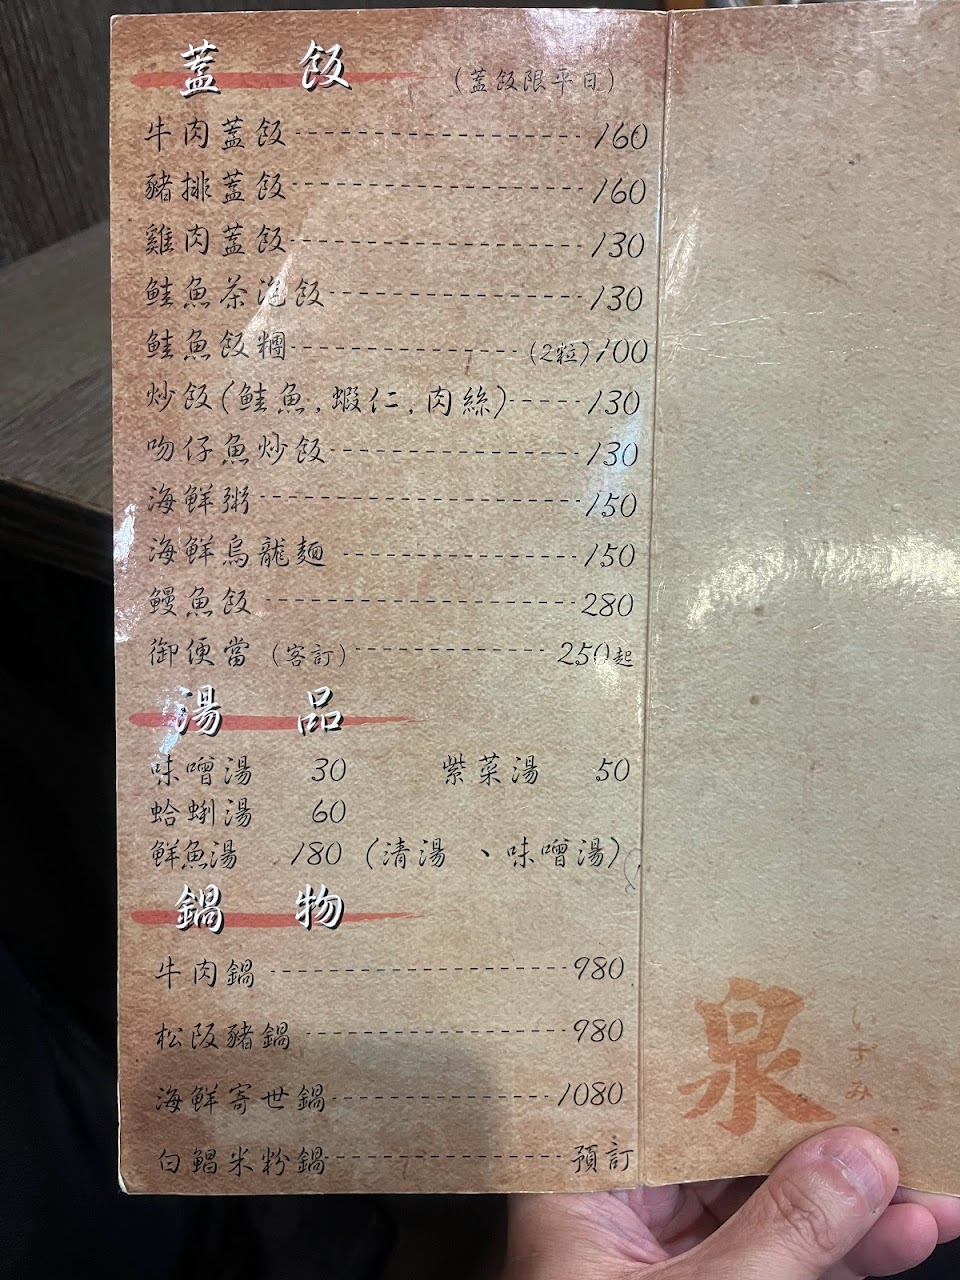 蓋 飯 (蓋飯限平日)
牛肉蓋飯 160
豬排蓋飯 160
雞肉蓋飯 130
鮭魚茶泡飯 130
鮭魚飯糰 (2粒)100
炒飯(鮭魚,蝦仁,肉絲) 130
吻仔魚炒飯 130
海鮮粥 150
海鮮烏龍麵 150
鰻魚飯 280
御便當 (客訂) 250起
湯 品
味噌湯 30 紫菜湯 50
蛤蜊湯 60
鮮魚湯 180 (清湯 、味噌湯)
鍋 物
牛肉鍋 980
松阪豬鍋 980
海鮮寄世鍋 1080
白鯧米粉鍋 預訂
泉
いずみ